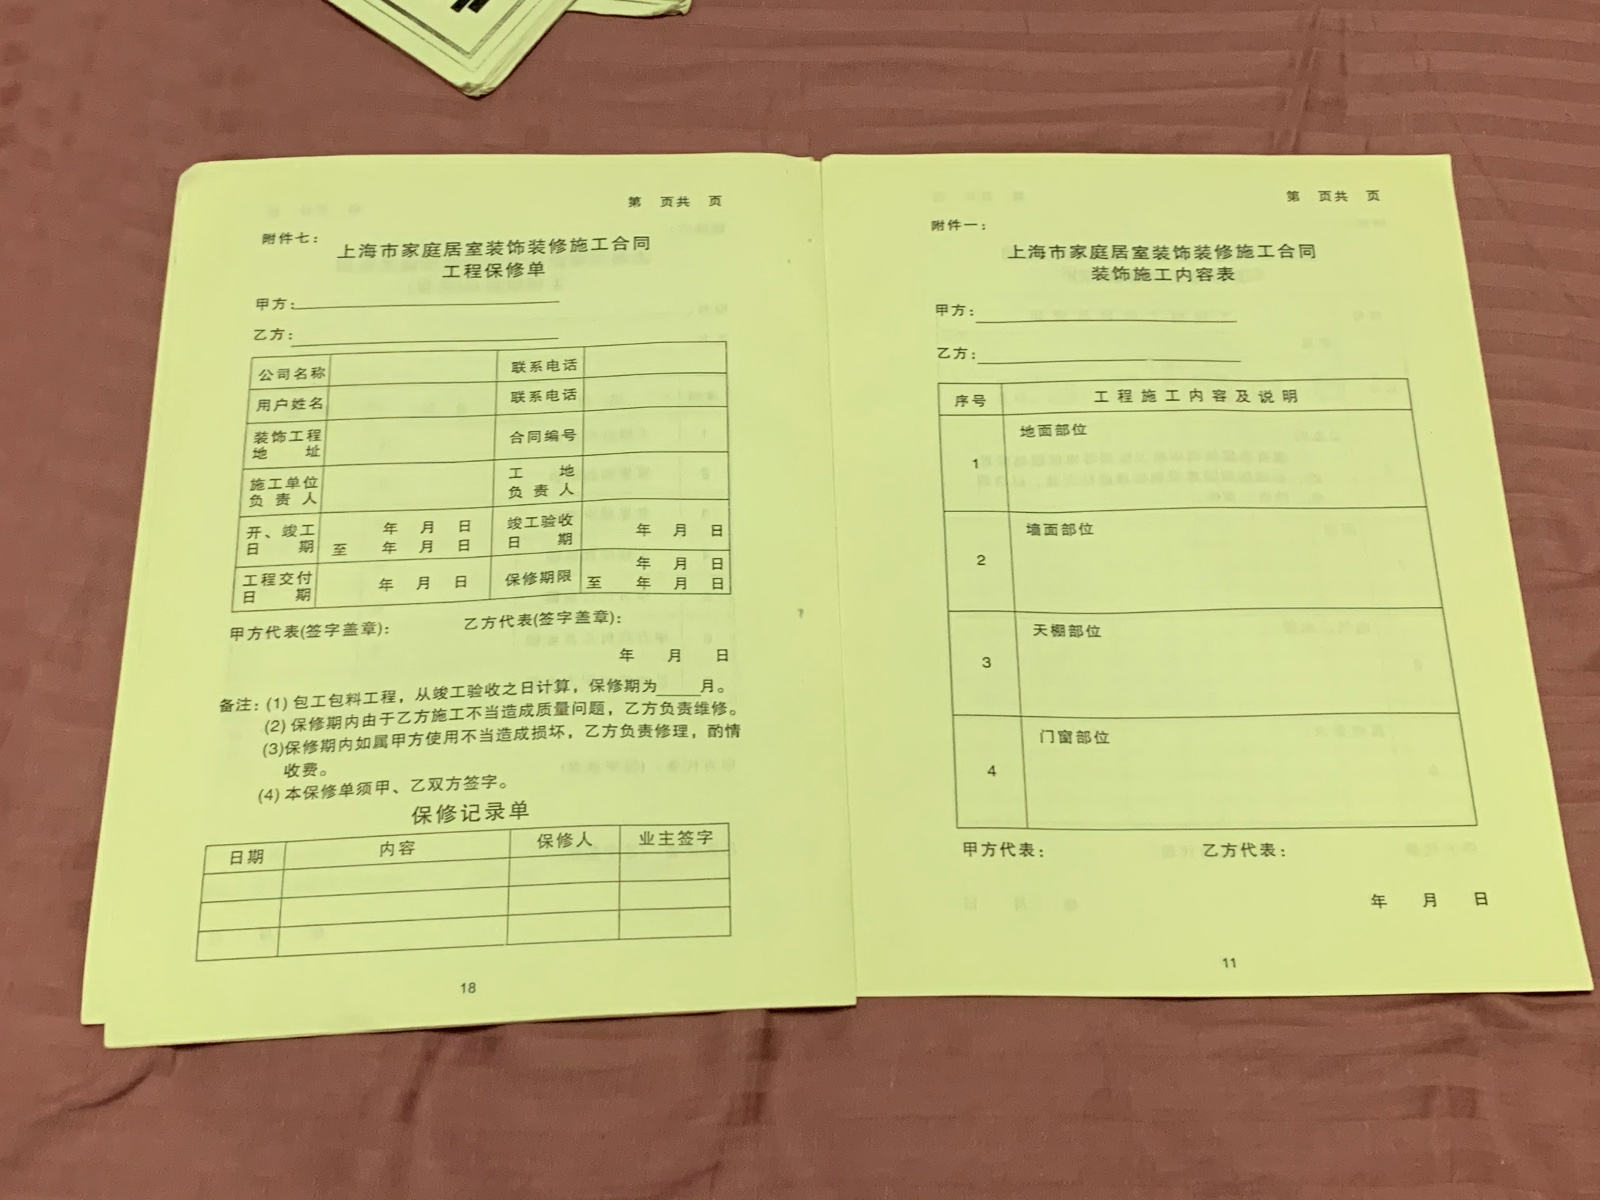 第 页共 页
附件七：
上海市家庭居室装饰装修施工合同
工程保修单
甲方：
乙方：
公司名称 联系电话
用户姓名 联系电话
装饰工程地址 合同编号
施工单位负责人 工地负责人
开、竣工日期 年 月 日 至 年 月 日 竣工验收日期 年 月 日
工程交付日期 年 月 日 保修期限 年 月 日 至 年 月 日
甲方代表(签字盖章)： 乙方代表(签字盖章)：
年 月 日
备注：(1) 包工包料工程，从竣工验收之日计算，保修期为____月。
(2) 保修期内由于乙方施工不当造成质量问题，乙方负责维修。
(3)保修期内如属甲方使用不当造成损坏，乙方负责修理，酌情
收费。
(4) 本保修单须甲、乙双方签字。
保修记录单
日期 内容 保修人 业主签字
18
第 页共 页
附件一：
上海市家庭居室装饰装修施工合同
装饰施工内容表
甲方：
乙方：
序号 工程施工内容及说明
1 地面部位
2 墙面部位
3 天棚部位
4 门窗部位
甲方代表： 乙方代表：
年 月 日
11